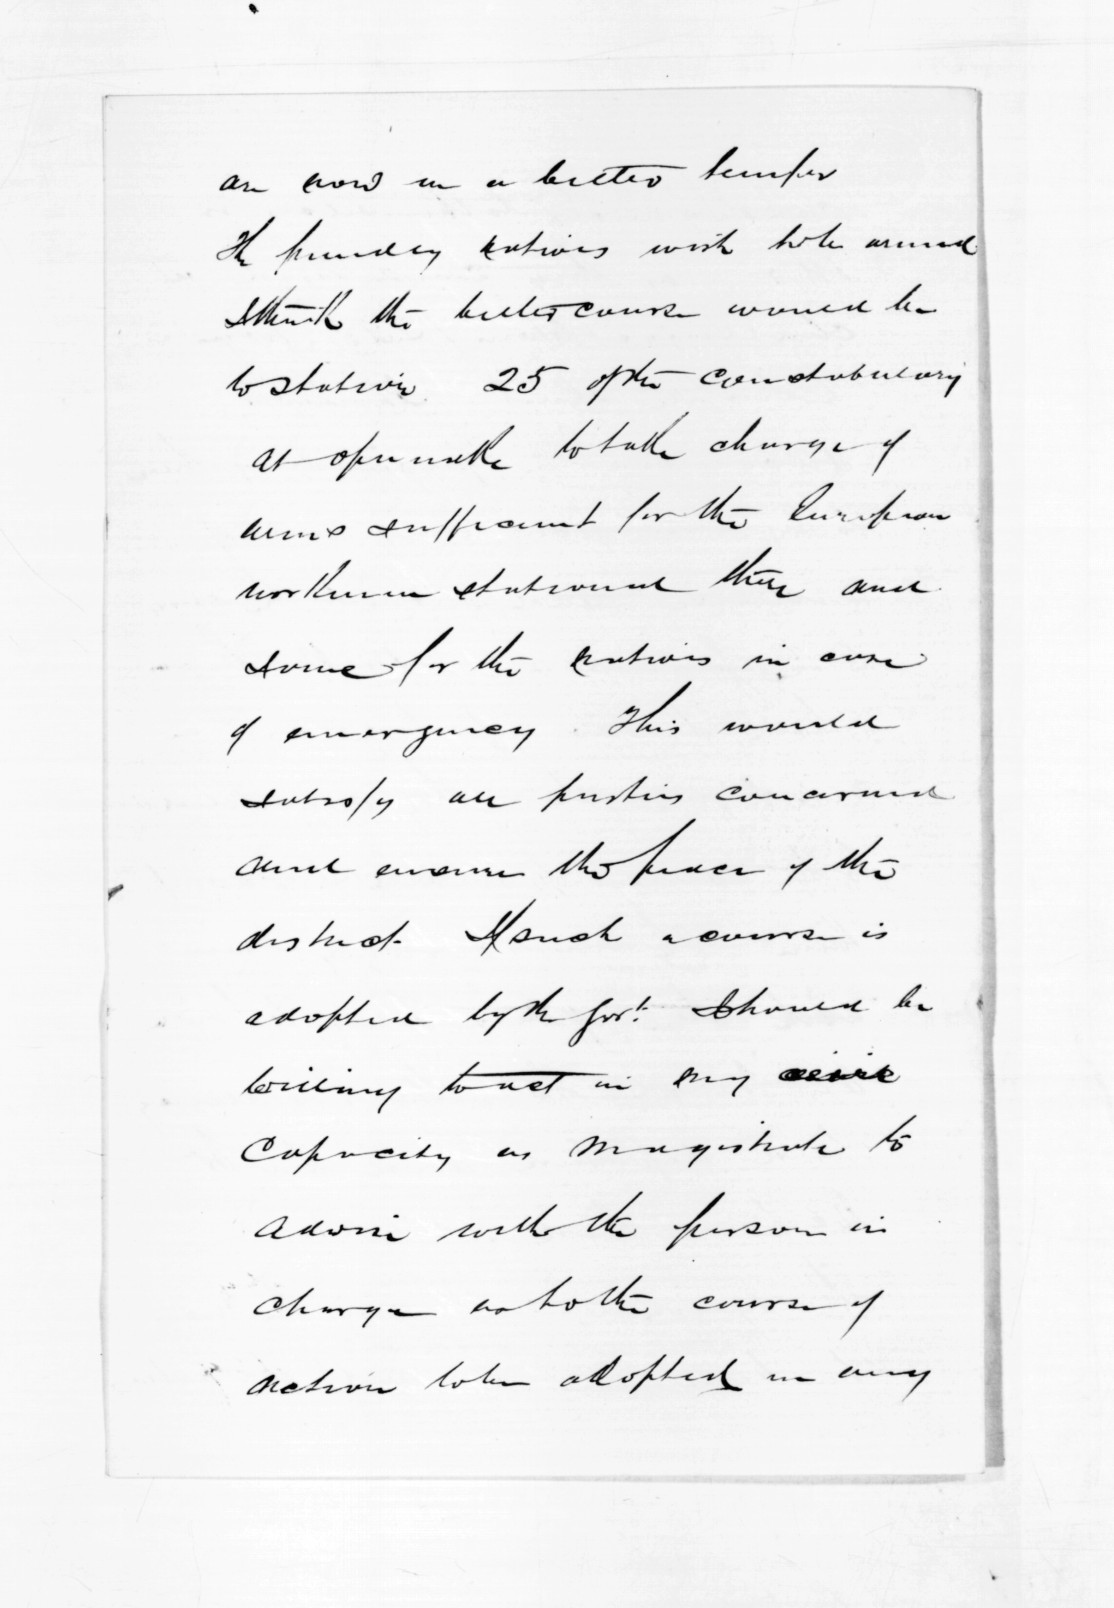 are now in a better temper
The friendly natives wish to be armed
I think the better course would be
to station 25 of the constabulary
at Opunake to take charge of
arms sufficient for the European
workmen stationed there and
some for the natives in case
of emergency. This would
satisfy all parties concerned
and ensure the peace of the
district. If such a course is
adopted by the Govt. I should be
willing to act in my civil
capacity as Magistrate to
advise with the person in
charge as to the course of
action to be adopted in any